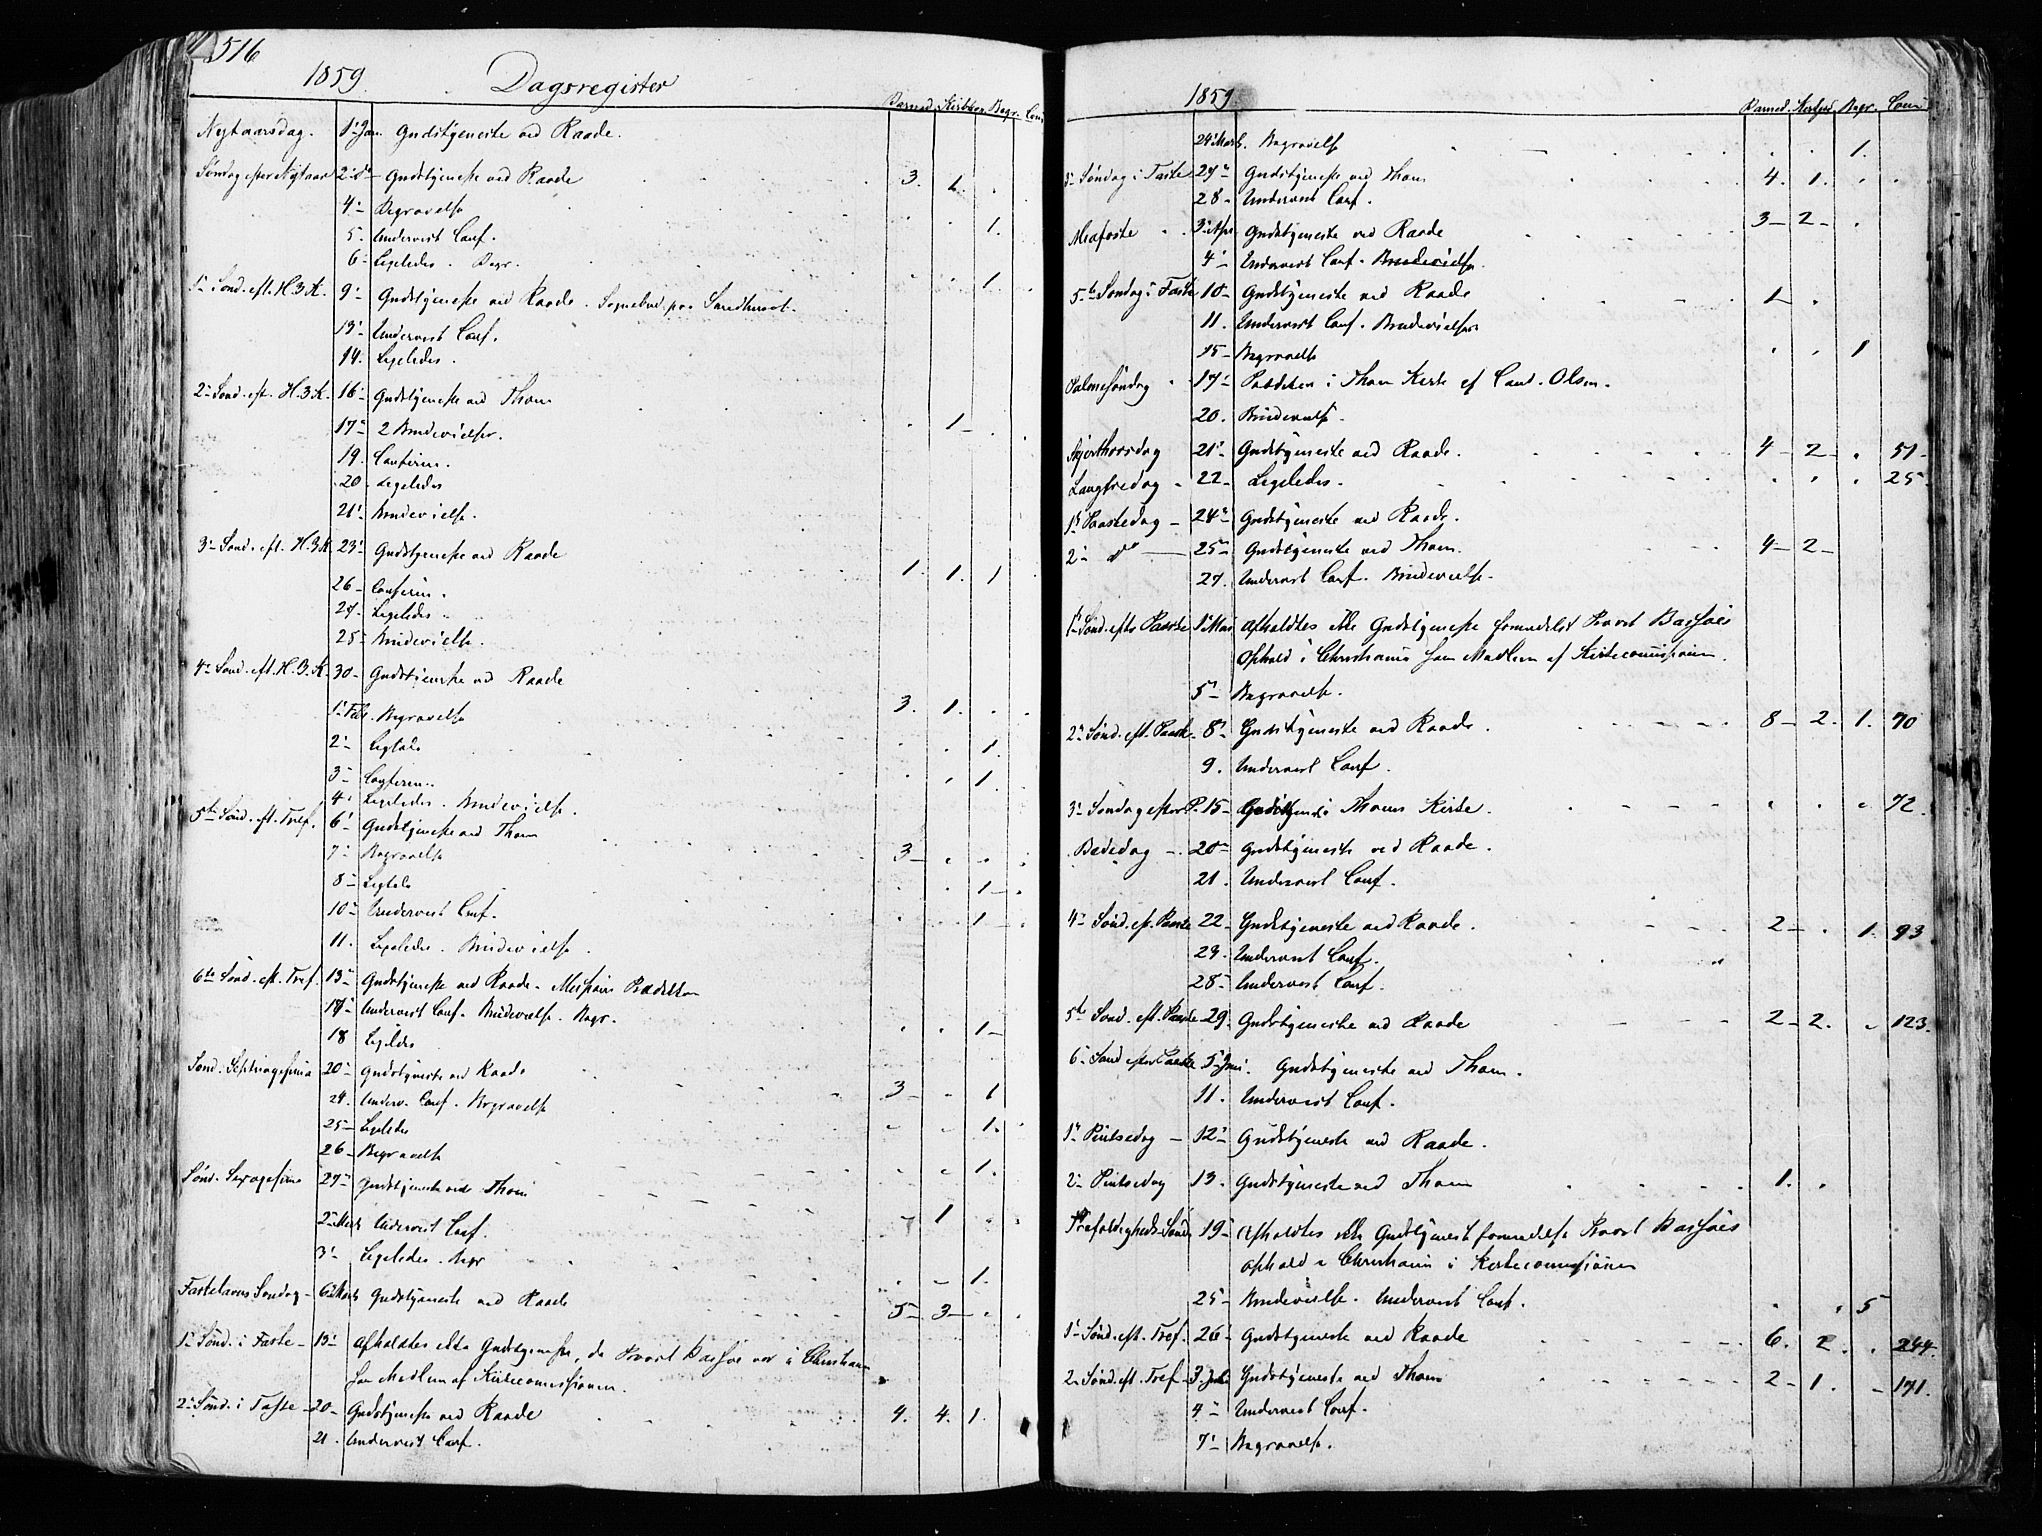 516
1859. Dagsregister
Barned. Kirkkon. Begr. Com.
Nytaarsdag. 1' Jan. Gudstjeneste ved Raade.
Søndag efter Nytaar 2' do Gudstjeneste ved Raade 3. 1.
4 - Begravelse 1.
5. Undervist Conf.
6 - Ligeledes. Begr. 1
1' Sønd. eft. H.3.K. 9 - Gudstjeneste ved Raade.
13' Undervist Conf.
14. Ligeledes.
2' Sønd. eft. H.3K. 16' Gudstjeneste ved Thom 1 -
17' 2 Brudevielser.
19. Confirm.
20 Ligeledes
21' Brudevielse.
3' Sønd. eft. H.3K. 23' Gudstjeneste ved Raade 1. 1. 1
26 - Confirm.
27 - Ligeledes.
28 - Brudevielse.
4' Sønd. eft. H.3.K. 30 - Gudstjeneste ved Raade 3. 1.
1' Feb. Begravelse 1.
2' Ligtale 1.
3' Confirm.
4. Ligeledes. Brudevielse.
5te Sønd. eft. Tref. 6' Gudstjeneste ved Thom 3 -
7' Begravelse 1 -
8 - Ligtale 1 -
10 - Undervist Conf.
11. Ligeledes. Brudevielse.
6te Sønd. eft. Tref. 13' Gudstjeneste ved Raade - Missions Prædiken
17' Undervist Conf. Brudevielse. Begr. 1 -
18 Ligeledes
Sønd. Septuagesima 20' Gudstjeneste ved Raade 3 - 1
24. Underv. Conf. Begravelse 1.
25 - Ligeledes
26 - Begravelse 1.
Sønd. Sexagesima 27' Gudstjeneste ved Thom 1
2' Marts Undervist Conf.
3' Ligeledes. Begr 1.
Fastelavns Søndag - 6' Marts Gudstjeneste ved Raade 5 - 3 -
1' Sønd. i Faste - 13' Afholdtes ikke Gudstjeneste, da Provst Bassøe var i Christiania
som Medlem af Kirkecommissionen.
2' Sønd. i Faste - 20 - Gudstjeneste ved Raade 4. 4. 1.
21. Undervist Conf.
1859.
Barned. Kirkgd. Begr. Com
24' Marts. Begravelse 1.
3' Søndag i Faste 27' Gudstjeneste ved Thom 4. 1.
28 - Undervist Conf.
Midfaste 3' Apr. Gudstjeneste ved Raade 3 - 2 -
4' Undervist Conf. Brudevielse.
5te Søndag i Faste 10 - Gudstjeneste ved Raade 1 -
11. Undervist Conf. Brudevielser
15 - Begravelse 1
Palmesøndag 17' Prædiken i Thom Kirke af Cand. Olsen.
20. Brudevielse.
Skjærthorsdag 21' Gudstjeneste ved Raade. 4 - 2 - 51 -
Langfredag - 22 - Ligeledes. 25
1' Paaskedag - 24' Gudstjeneste ved Raade.
2' do 25' Gudstjeneste ved Thom. 4 - 2 -
27. Undervist Conf. Brudevielse.
1' Sønd. efter Paaske 1' Mai Afholdtes ikke Gudstjeneste formedelst Provst Bassøes
Ophold i Christiania som Medlem af Kirkecommissionen.
5' Begravelse.
2' Sønd. eft. Paaske 8' Gudstjeneste ved Raade. 8 - 2. 1. 70
9. Undervist Conf.
3' Søndag efter P. 15 - Gudstjeneste i Thoms Kirke. 72.
Bededag - 20 - Gudstjeneste ved Raade.
21. Undervist Conf.
4' Sønd. eft. Paaske 22. Gudstjeneste ved Raade. 2 - 1. 93
23. Undervist Conf.
28 - Undervist Conf.
5te Sønd. eft. Paaske 29. Gudstjeneste ved Raade 2 - 2. 123.
6' Sønd. efter Paaske 5' Juni. Gudstjeneste ved Thom.
11. Undervist Conf.
1' Pintsedag - 12' Gudstjeneste ved Raade.
2' Pintsedag 13. Gudstjeneste ved Thom 1.
Trefoldigheds Sønd 19' Afholdtes ikke Gudstjeneste formedelst Provst Bassøes
Ophold i Christiania i Kirkecommissionen
25 - Brudevielse. Undervist Conf. 5
1' Sønd. eft. Tref. 26' Gudstjeneste ved Raade 6. 2. 244.
2' Sønd. eft. Tref - 3. Juli Gudstjeneste ved Thom 2 - 1. 171.
4' Undervist Conf.
7' Begravelse.